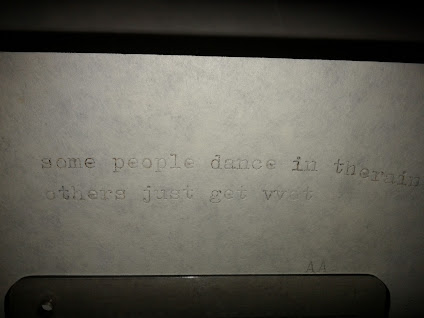 some people dance in therain
others just get vvet
AA